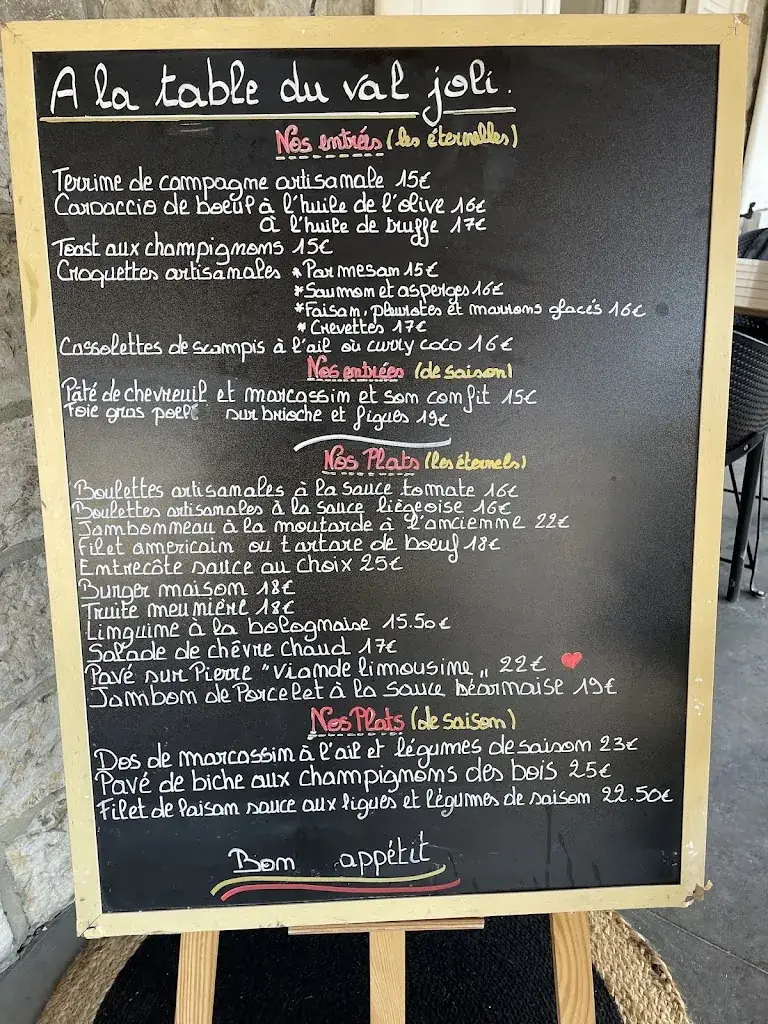 A la table du val joli.
Nos entrées (les éternelles)
Terrine de campagne artisanale 15€
Carpaccio de boeuf à l'huile de l'olive 16€
à l'huile de truffe 17€
Toast aux champignons 15€
Croquettes artisanales * Parmesan 15€
* Saumon et asperges 16€
* Faisan, pleurotes et marrons glacés 16€
* Crevettes 17€
Cassolettes de scampis à l'ail ou curry coco 16€
Nos entrées (de saison)
Pâté de chevreuil et marcassin et son confit 15€
Foie gras poelé sur brioche et figues 19€
Nos Plats (les éternels)
Boulettes artisanales à la sauce tomate 16€
Boulettes artisanales à la sauce liégeoise 16€
Jambonneau à la moutarde à l'ancienne 22€
Filet americain ou tartare de boeuf 18€
Entrecôte sauce au choix 25€
Burger maison 18€
Truite meunière 18€
Linguine à la bolognaise 15.50€
Salade de chêvre chaud 17€
Pavé sur Pierre "Viande limousine" 22€ ♥
Jambon de Porcelet à la sauce béarnaise 19€
Nos Plats (de saison)
Dos de marcassin à l'ail et légumes de saison 23€
Pavé de biche aux champignons des bois 25€
Filet de faisan sauce aux figues et légumes de saison 22.50€
Bon appétit